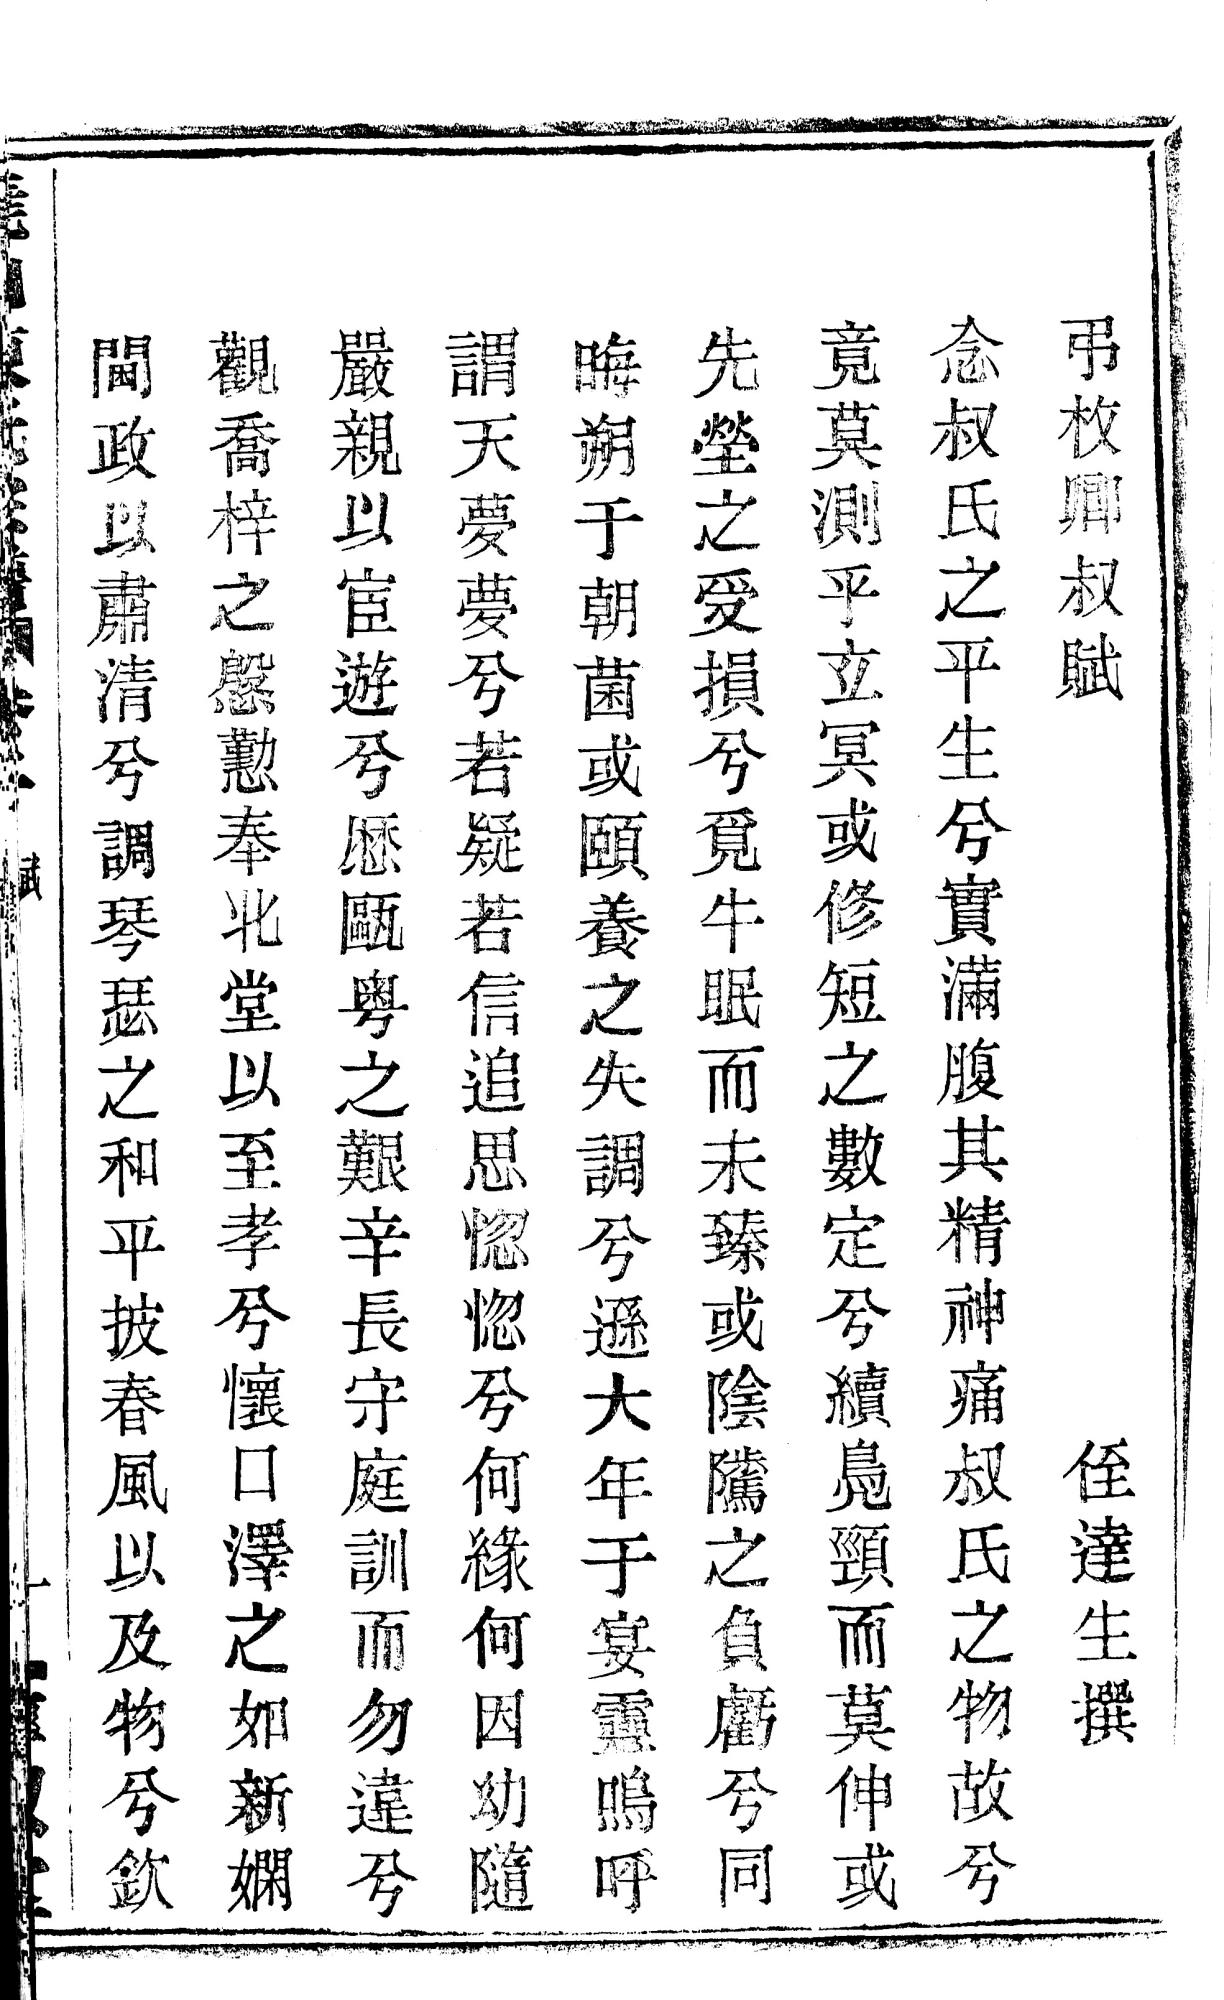 弔枚卿叔賦 侄達生撰
念叔氏之平生兮實滿腹其精神痛叔氏之物故兮
竟莫測乎立冥或修短之數定兮續鳧頸而莫伸或
先塋之受損兮覓牛眠而未臻或陰隲之負虧兮同
晦朔于朝菌或頤養之失調兮遜大年于宴靈嗚呼
謂天夢夢兮若疑若信追思惚惚兮何緣何因幼隨
嚴親以宦遊兮歷甌粵之艱辛長守庭訓而勿違兮
觀喬梓之慇懃奉北堂以至孝兮懷口澤之如新嫻
閫政以肅清兮調琴瑟之和平披春風以及物兮欽
賦